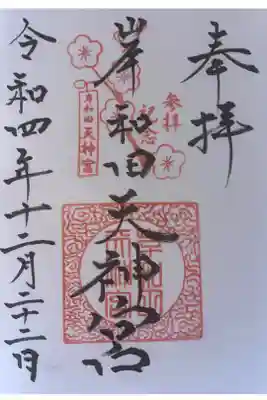 奉拝
参拝
記念
岸和田天神宮
岸和田
天神宮
令和四年十二月二十二日